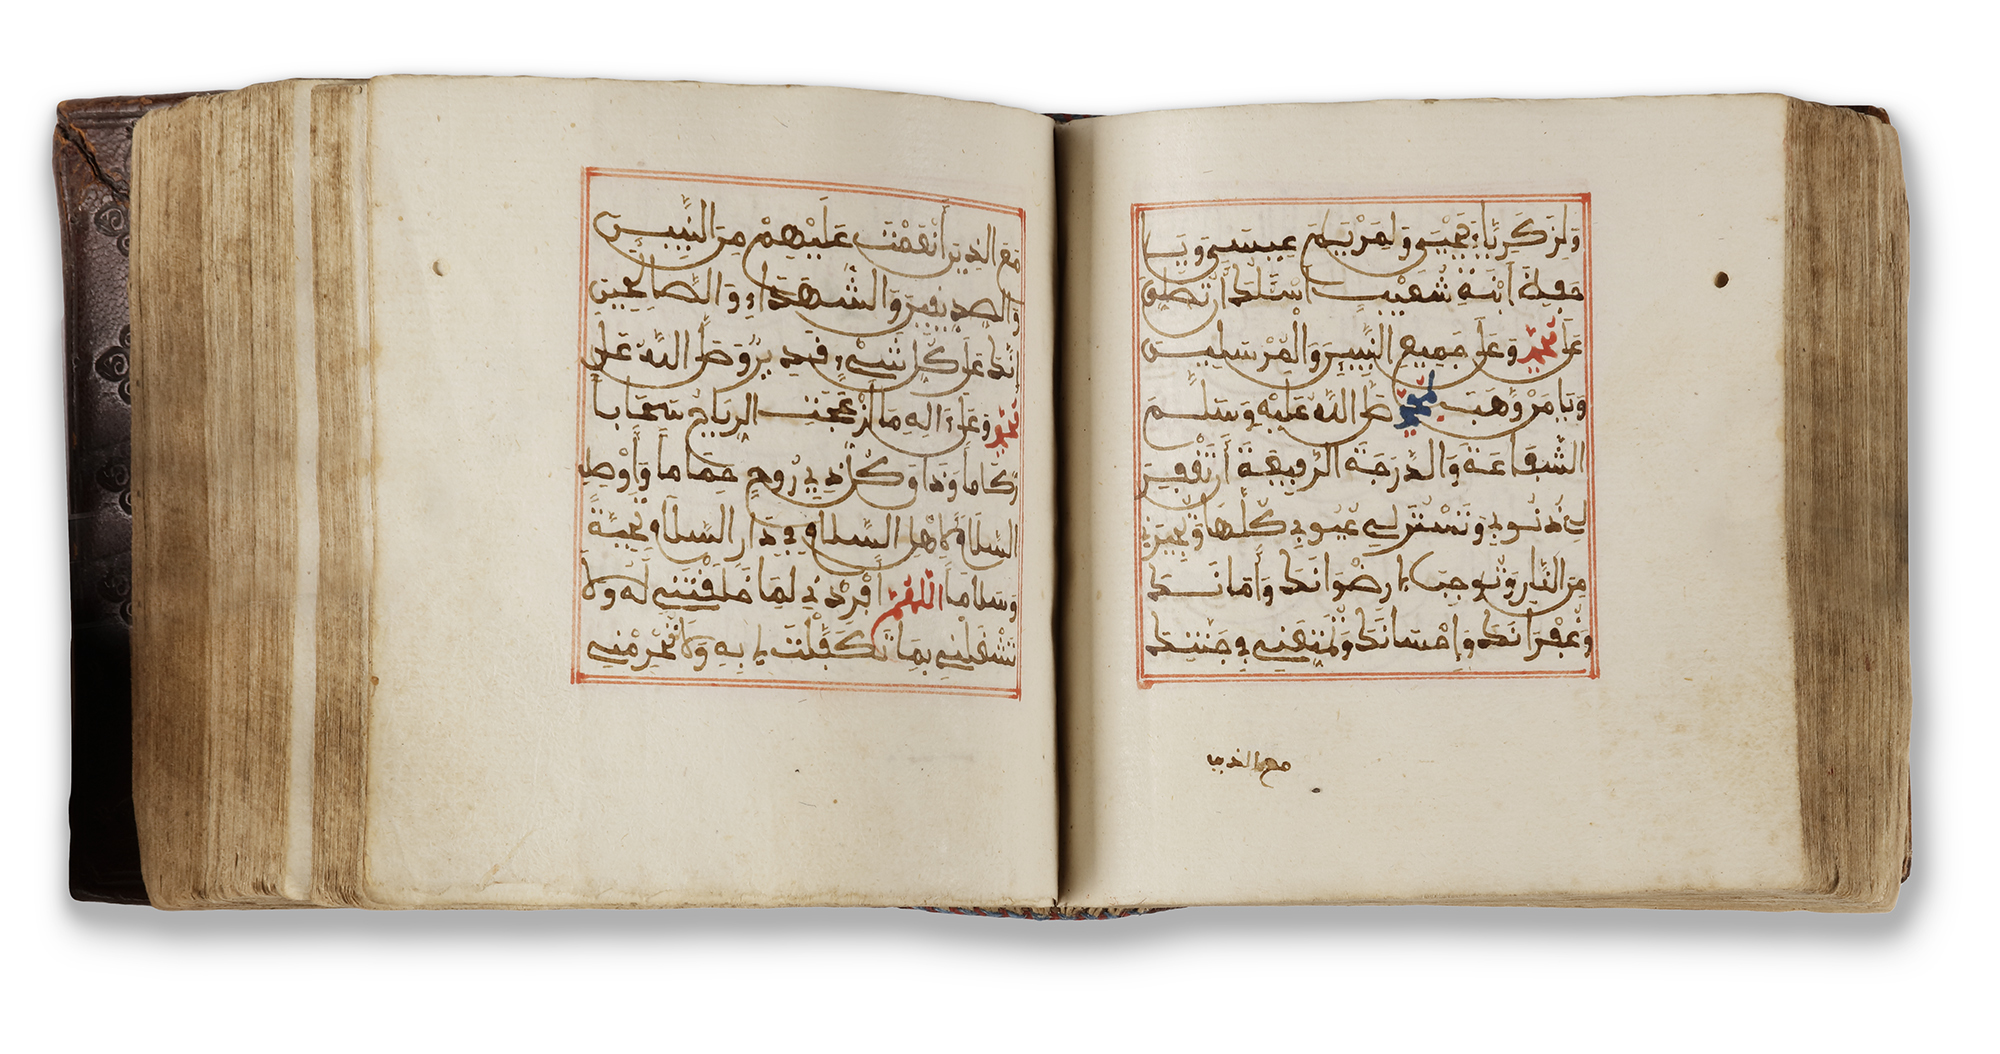 وَلِزَكَرِيَّاءَ يَحْيَى وَلِمَرْيَمَ عِيسَى وَيَا
حَافِظَ ابْنَةِ شُعَيْبٍ أَسْئَلُكَ أَن تُصَلِّيَ
عَلَى مُحَمَّدٍ وَعَلَى جَمِيعِ النَّبِيِّينَ وَالْمُرْسَلِينَ
وَيَا مَنْ وَهَبَ لِمُحَمَّدٍ صَلَّى اللَّهُ عَلَيْهِ وَسَلَّمَ
الشَّفَاعَةَ وَالدَّرَجَةَ الرَّفِيعَةَ أَن تَغْفِرَ
لِي ذُنُوبِي وَتَسْتُرَ لِي عُيُوبِي كُلَّهَا وَتُجِيرَنِي
مِنَ النَّارِ وَتُوجِبَ لِي رِضْوَانَكَ وَأَمَانَكَ
وَغُفْرَانَكَ وَإِحْسَانَكَ وَتُمَتِّعَنِي فِي جَنَّتِكَ
مع الذين
مَعَ الَّذِينَ أَنْعَمْتَ عَلَيْهِم مِّنَ النَّبِيِّينَ
وَالصِّدِّيقِينَ وَالشُّهَدَاءِ وَالصَّالِحِينَ
إِنَّكَ عَلَى كُلِّ شَيْءٍ قَدِيرٌ وَصَلَّى اللَّهُ عَلَى
مُحَمَّدٍ وَعَلَى ءَالِهِ مَا أَزْعَجَتِ الرِّيَاحُ سَحَاباً
رُكَاماً وَذَاقَ كُلُّ ذِي رُوحٍ حِمَاماً وَأَوْصِلِ
السَّلَامَ لِأَهْلِ السَّلَامِ فِي دَارِ السَّلَامِ تَحِيَّةً
وَسَلَاماً اللَّهُمَّ أَفْرِدْنِي لِمَا خَلَقْتَنِي لَهُ وَلَا
تَشْغَلْنِي بِمَا تَكَفَّلْتَ لِي بِهِ وَلَا تَحْرِمْنِي